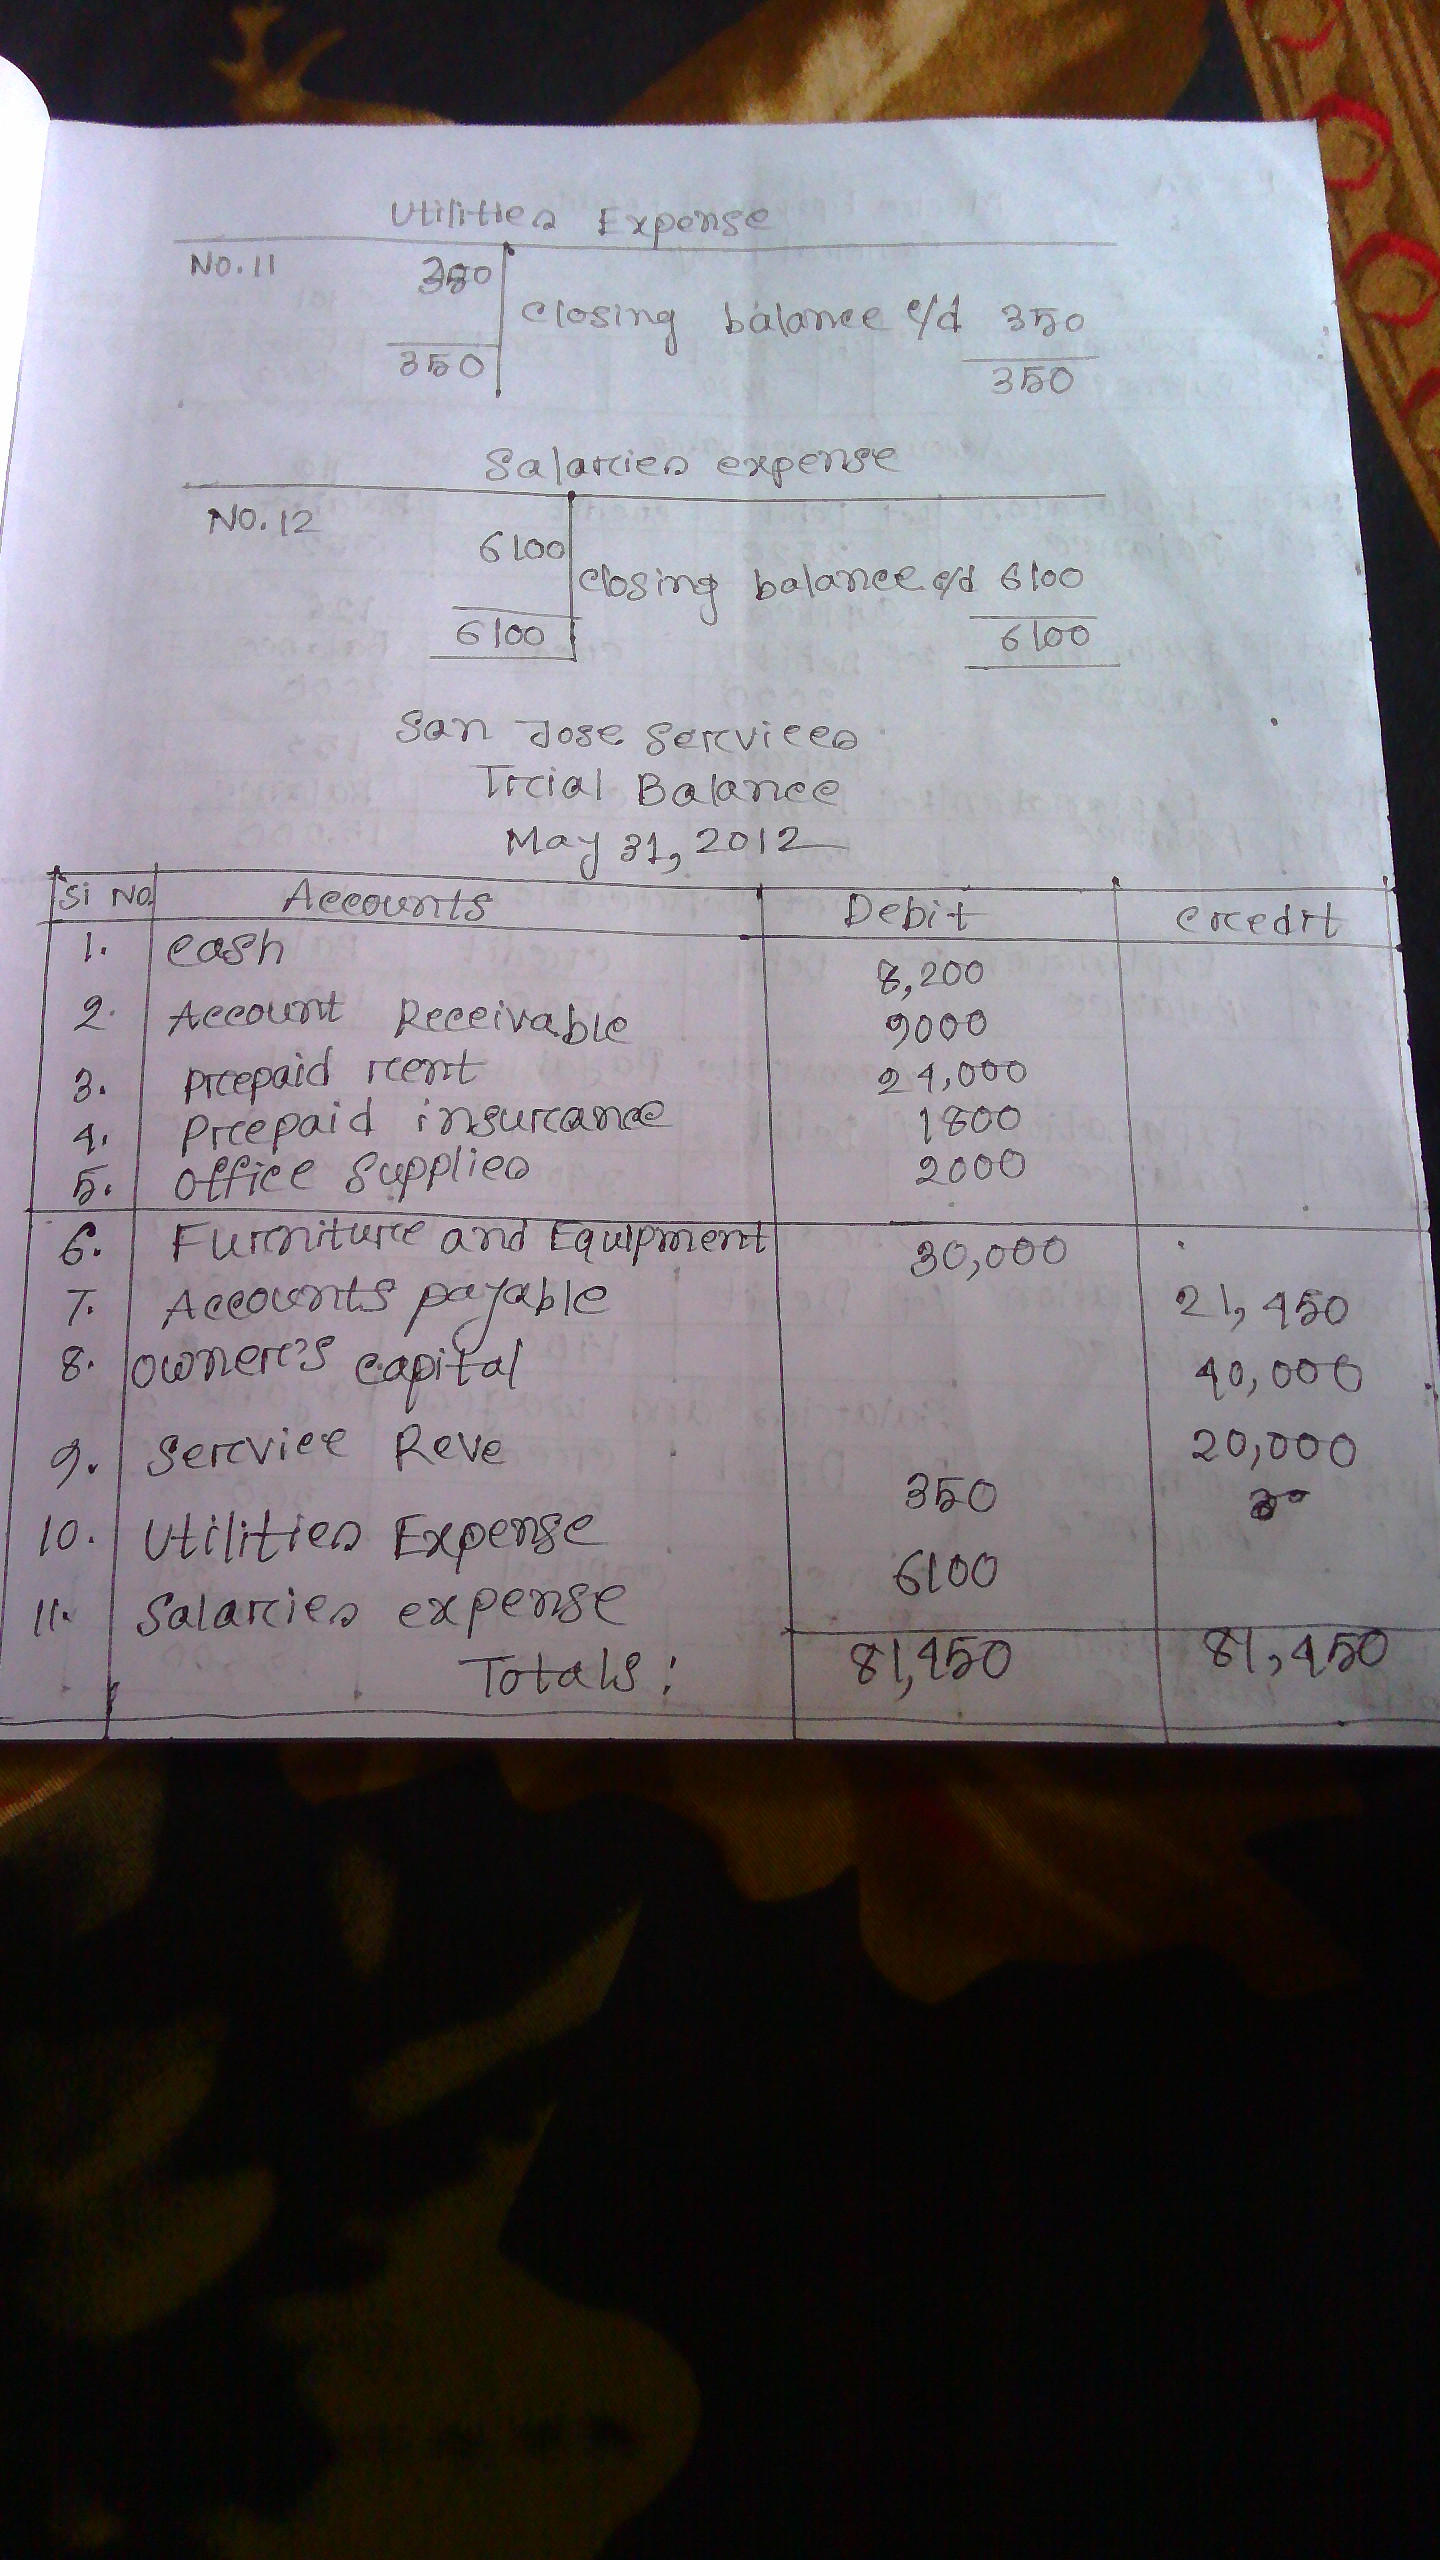 Utilities Expense
No. 11 350
closing balance c/d 350
350 350
Salaries expense
No. 12
6100
closing balance c/d 6100
6100 6100
San Jose Services
Trial Balance
May 31, 2012
Si No. Accounts Debit credit
1. cash 8,200
2. Account Receivable 9000
3. prepaid rent 24,000
4. prepaid insurance 1800
5. office supplies 2000
6. Furniture and Equipment 30,000
7. Accounts payable 21,450
8. owner's capital 40,000
9. Service Reve 20,000
10. Utilities Expense 350
11. Salaries expense 6100
Totals: 81,450 81,450